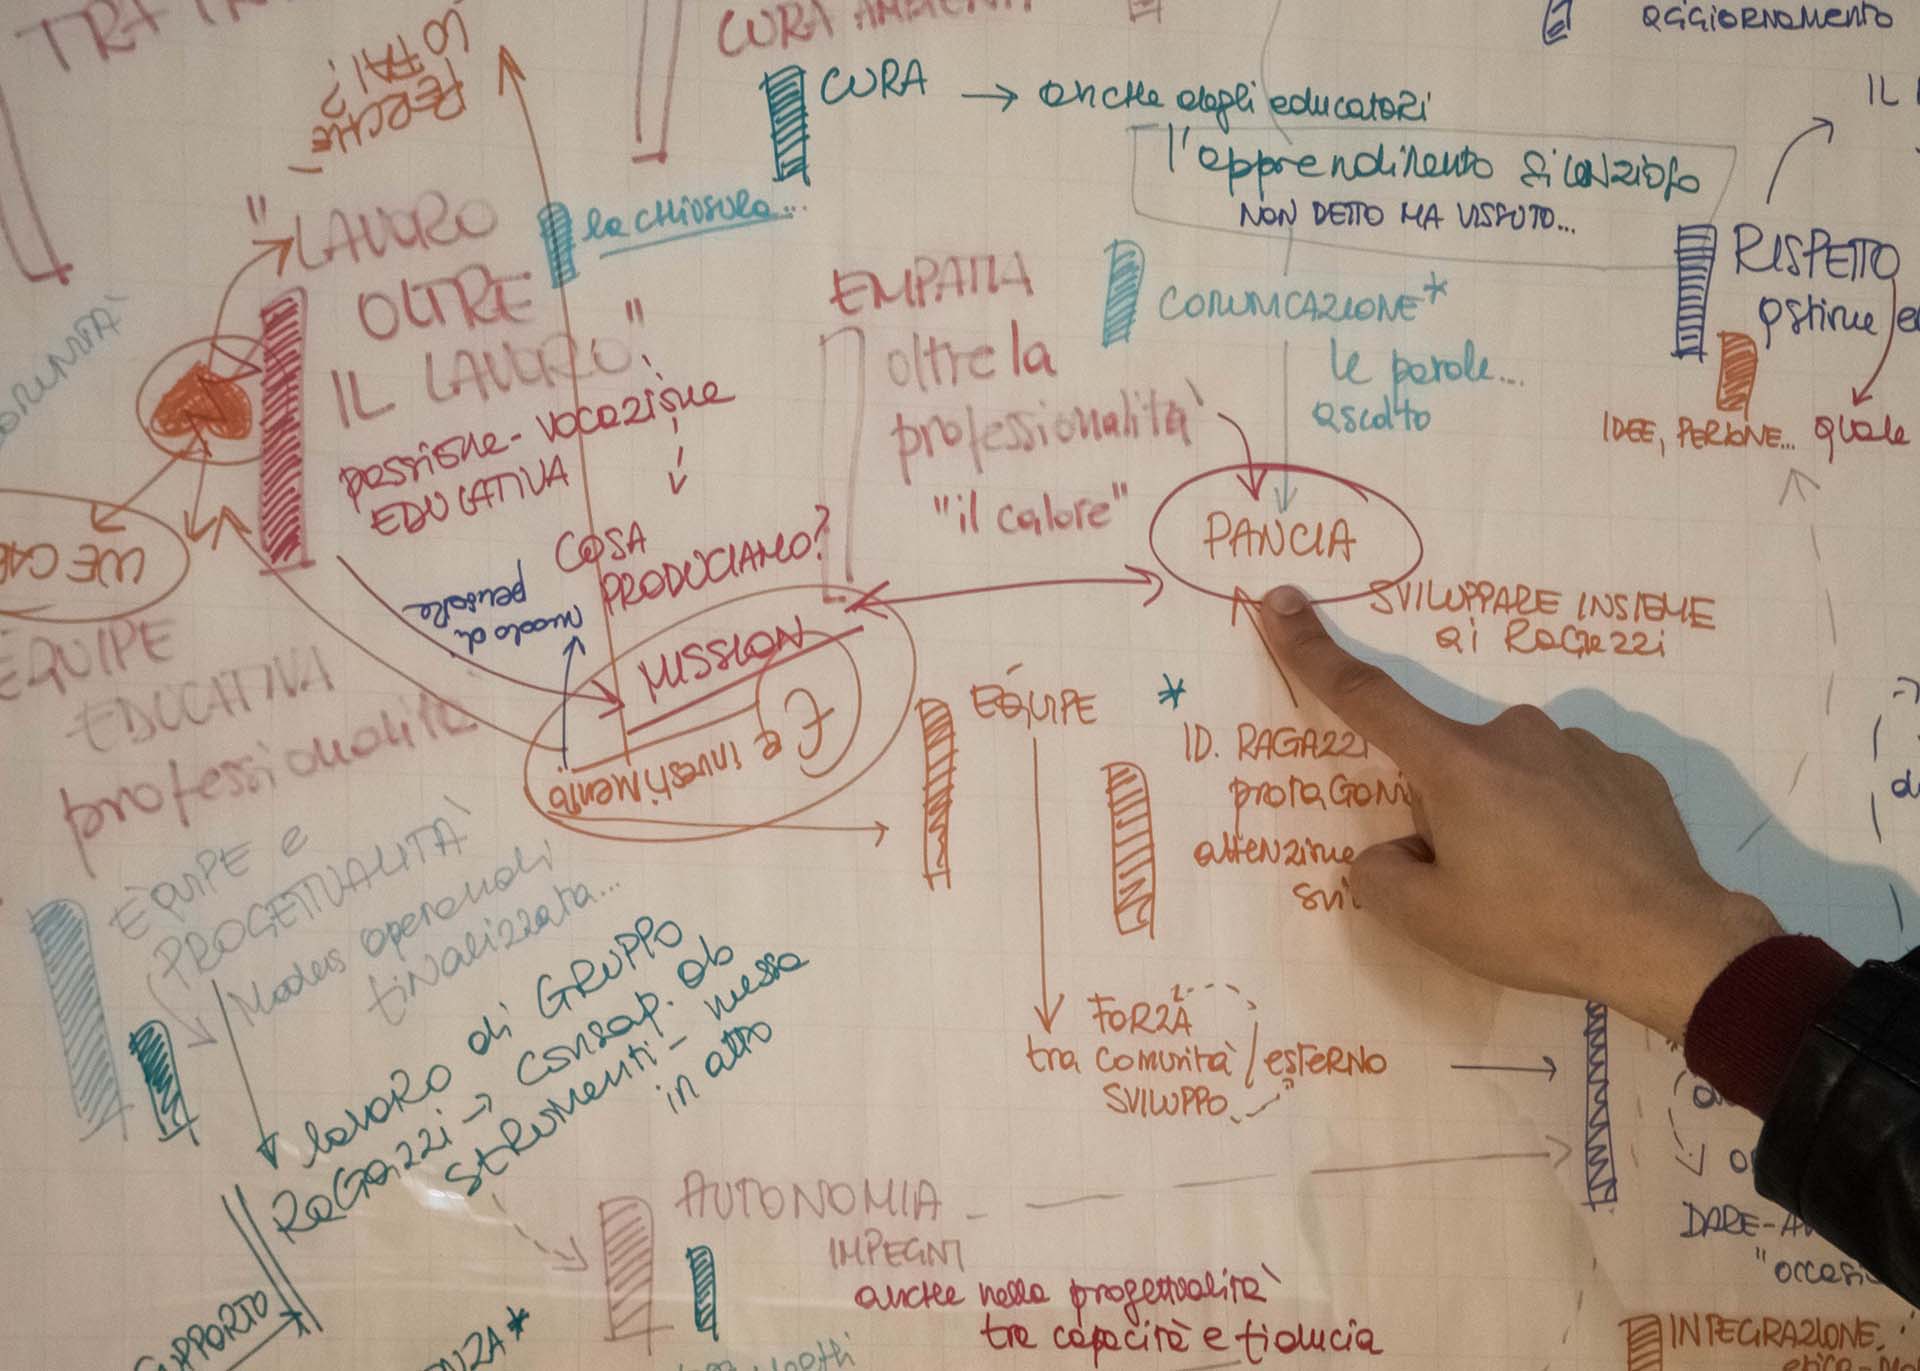 CURA AMBIENT
AGGIORNAMENTO
PERCHÉ
LO FAI?
CURA → anche degli educatori
IL
l'apprendimento silenzioso
NON DETTO MA VISSUTO...
la chiusura...
"LAVORO
OLTRE
IL LAVORO"
passione-vocazione
EDUCATIVA
EMPATIA
oltre la
professionalità
"il calore"
COMUNICAZIONE*
le parole...
ascolto
RISPETTO
IDEE, PERSONE... quale
PANCIA
COSA
PRODUCIAMO?
modo di
pensare
MISSION
È
investimento
SVILUPPARE INSIEME
ai RAGAZZI
EQUIPE
EDUCATIVA
professionalità
EQUIPE *
ID. RAGAZZI
protagoni
attenzione
svi
EQUIPE e
PROGETTUALITÀ
Modus operandi
finalizzata...
lavoro di GRUPPO
RAGAZZI → consap. ob
strumenti - messa
in atto
FORZA
tra comunità/esterno
SVILUPPO
AUTONOMIA
IMPEGNI
anche nella progettualità
tra capacità e fiducia
DARE-A
"occasi
SUPPORTO
INTEGRAZIONE